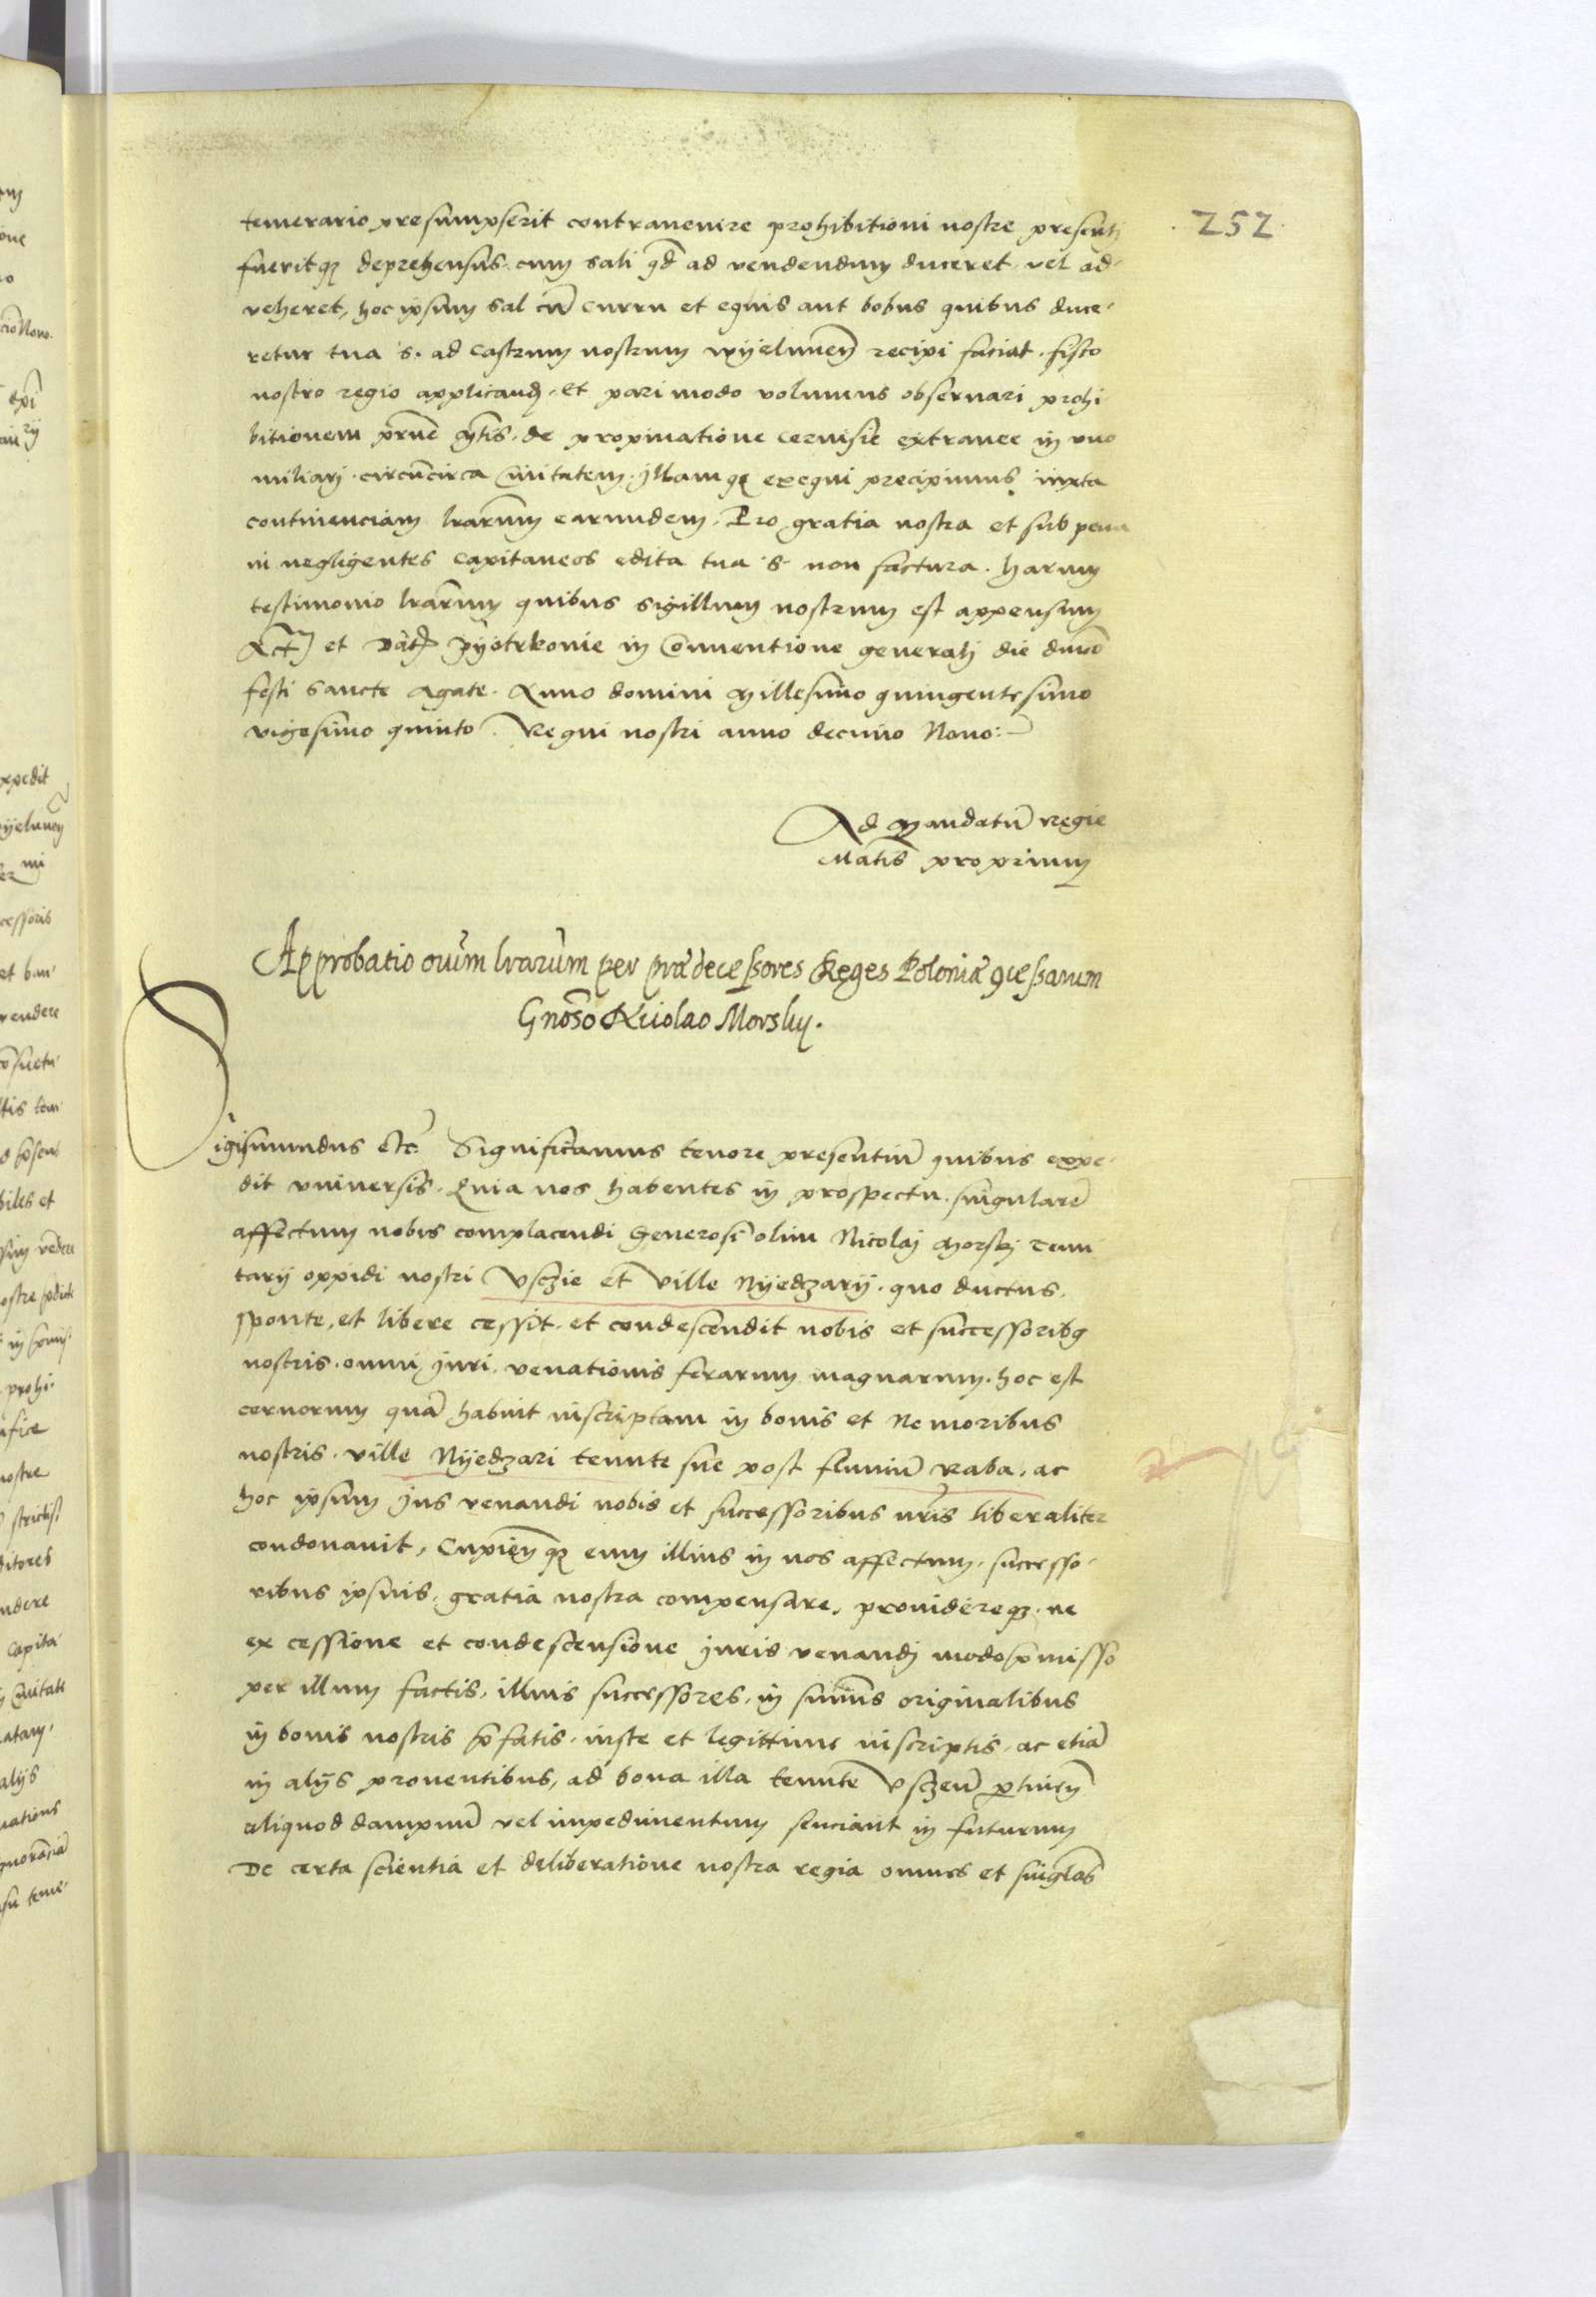 252
temerario presumpserit contravenire prohibitioni nostre presenti
fueritq3 deprehensus cum sali qd ad vendendum duceret vel ad-
veheret, hoc ipsum sal cu curru et equis aut bobus quibus duce-
retur tua S. ad castrum nostrum wyelunen recipi faciat fisco
nostro regio applicand. Et pari modo volumus observari prohi-
bitionem de propinatione cervisie extranee in uno
miliari circucirca Civitatem illamq3 exequi precipimus iuxta
continenciam lrarum earundem. Pro gratia nostra et sub pena
in negligentes Capitaneos edita tua S. non factura. Harum
testimonio lrarum quibus sigillum nostrum est appensum
Act et Dat Pyotrkovie in Conventione generali die
festi Sancte Agate. Anno domini Millesimo quingentesimo
vigesimo quinto. Regni nostri anno decimo Nono:
Ad Mandatu Regie
Matis proprium
Approbatio oium lrarum per prædecessores Reges Poloniæ 9cessarum
Gnoso Nicolao Morsky.
Sigismundus etc. Significamus tenore presentiu quibus expe-
dit universis. Quia nos habentes in prospectu singulare
affectum nobis complacendi Generosi olim Nicolai Morski tenu
tarii oppidi nostri Usczie et ville Nyedzary. quo ductus,
sponte, et libere cessit et condescendit nobis et successoribq
nostris omni iuri venationis ferarum magnarum. hoc est
cervorum qua habuit inscriptam in bonis et Nemoribus
nostris ville Nyedzari tenute sue post fluviu Raba, ac
hoc ipsum Jus venandi nobis et successoribus nris liberaliter
condonavit, Cupien q3 eum illius in nos affectum, successo-
ribus ipsius gratia nostra compensare, providereq3 ne
ex cessione et condescensione juris venandi modo pmisso
per illum factis, illius successores, in sumis originalibus
in bonis nostris pfatis iuste et legittime inscriptis, ac etia
in aliis proventibus, ad bona illa tenute Usczen ptinen
aliquod dampnu vel impedimentum senciant in futurum
De certa scientia et deliberatione nostra regia omnes et singlas